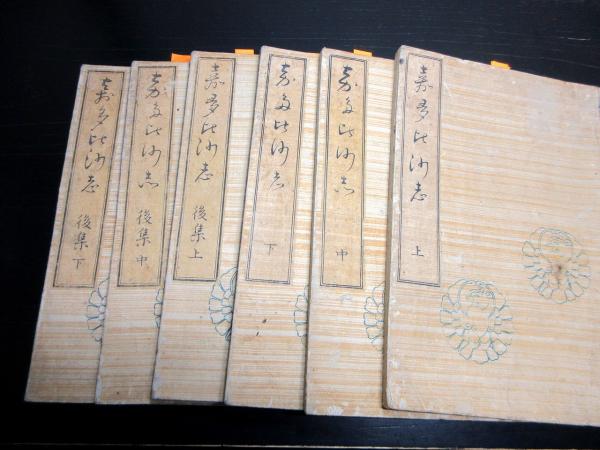 嘉多比沙志 上
嘉多比沙志 中
嘉多比沙志 下
嘉多比沙志 後集上
嘉多比沙志 後集中
嘉多比沙志 後集下